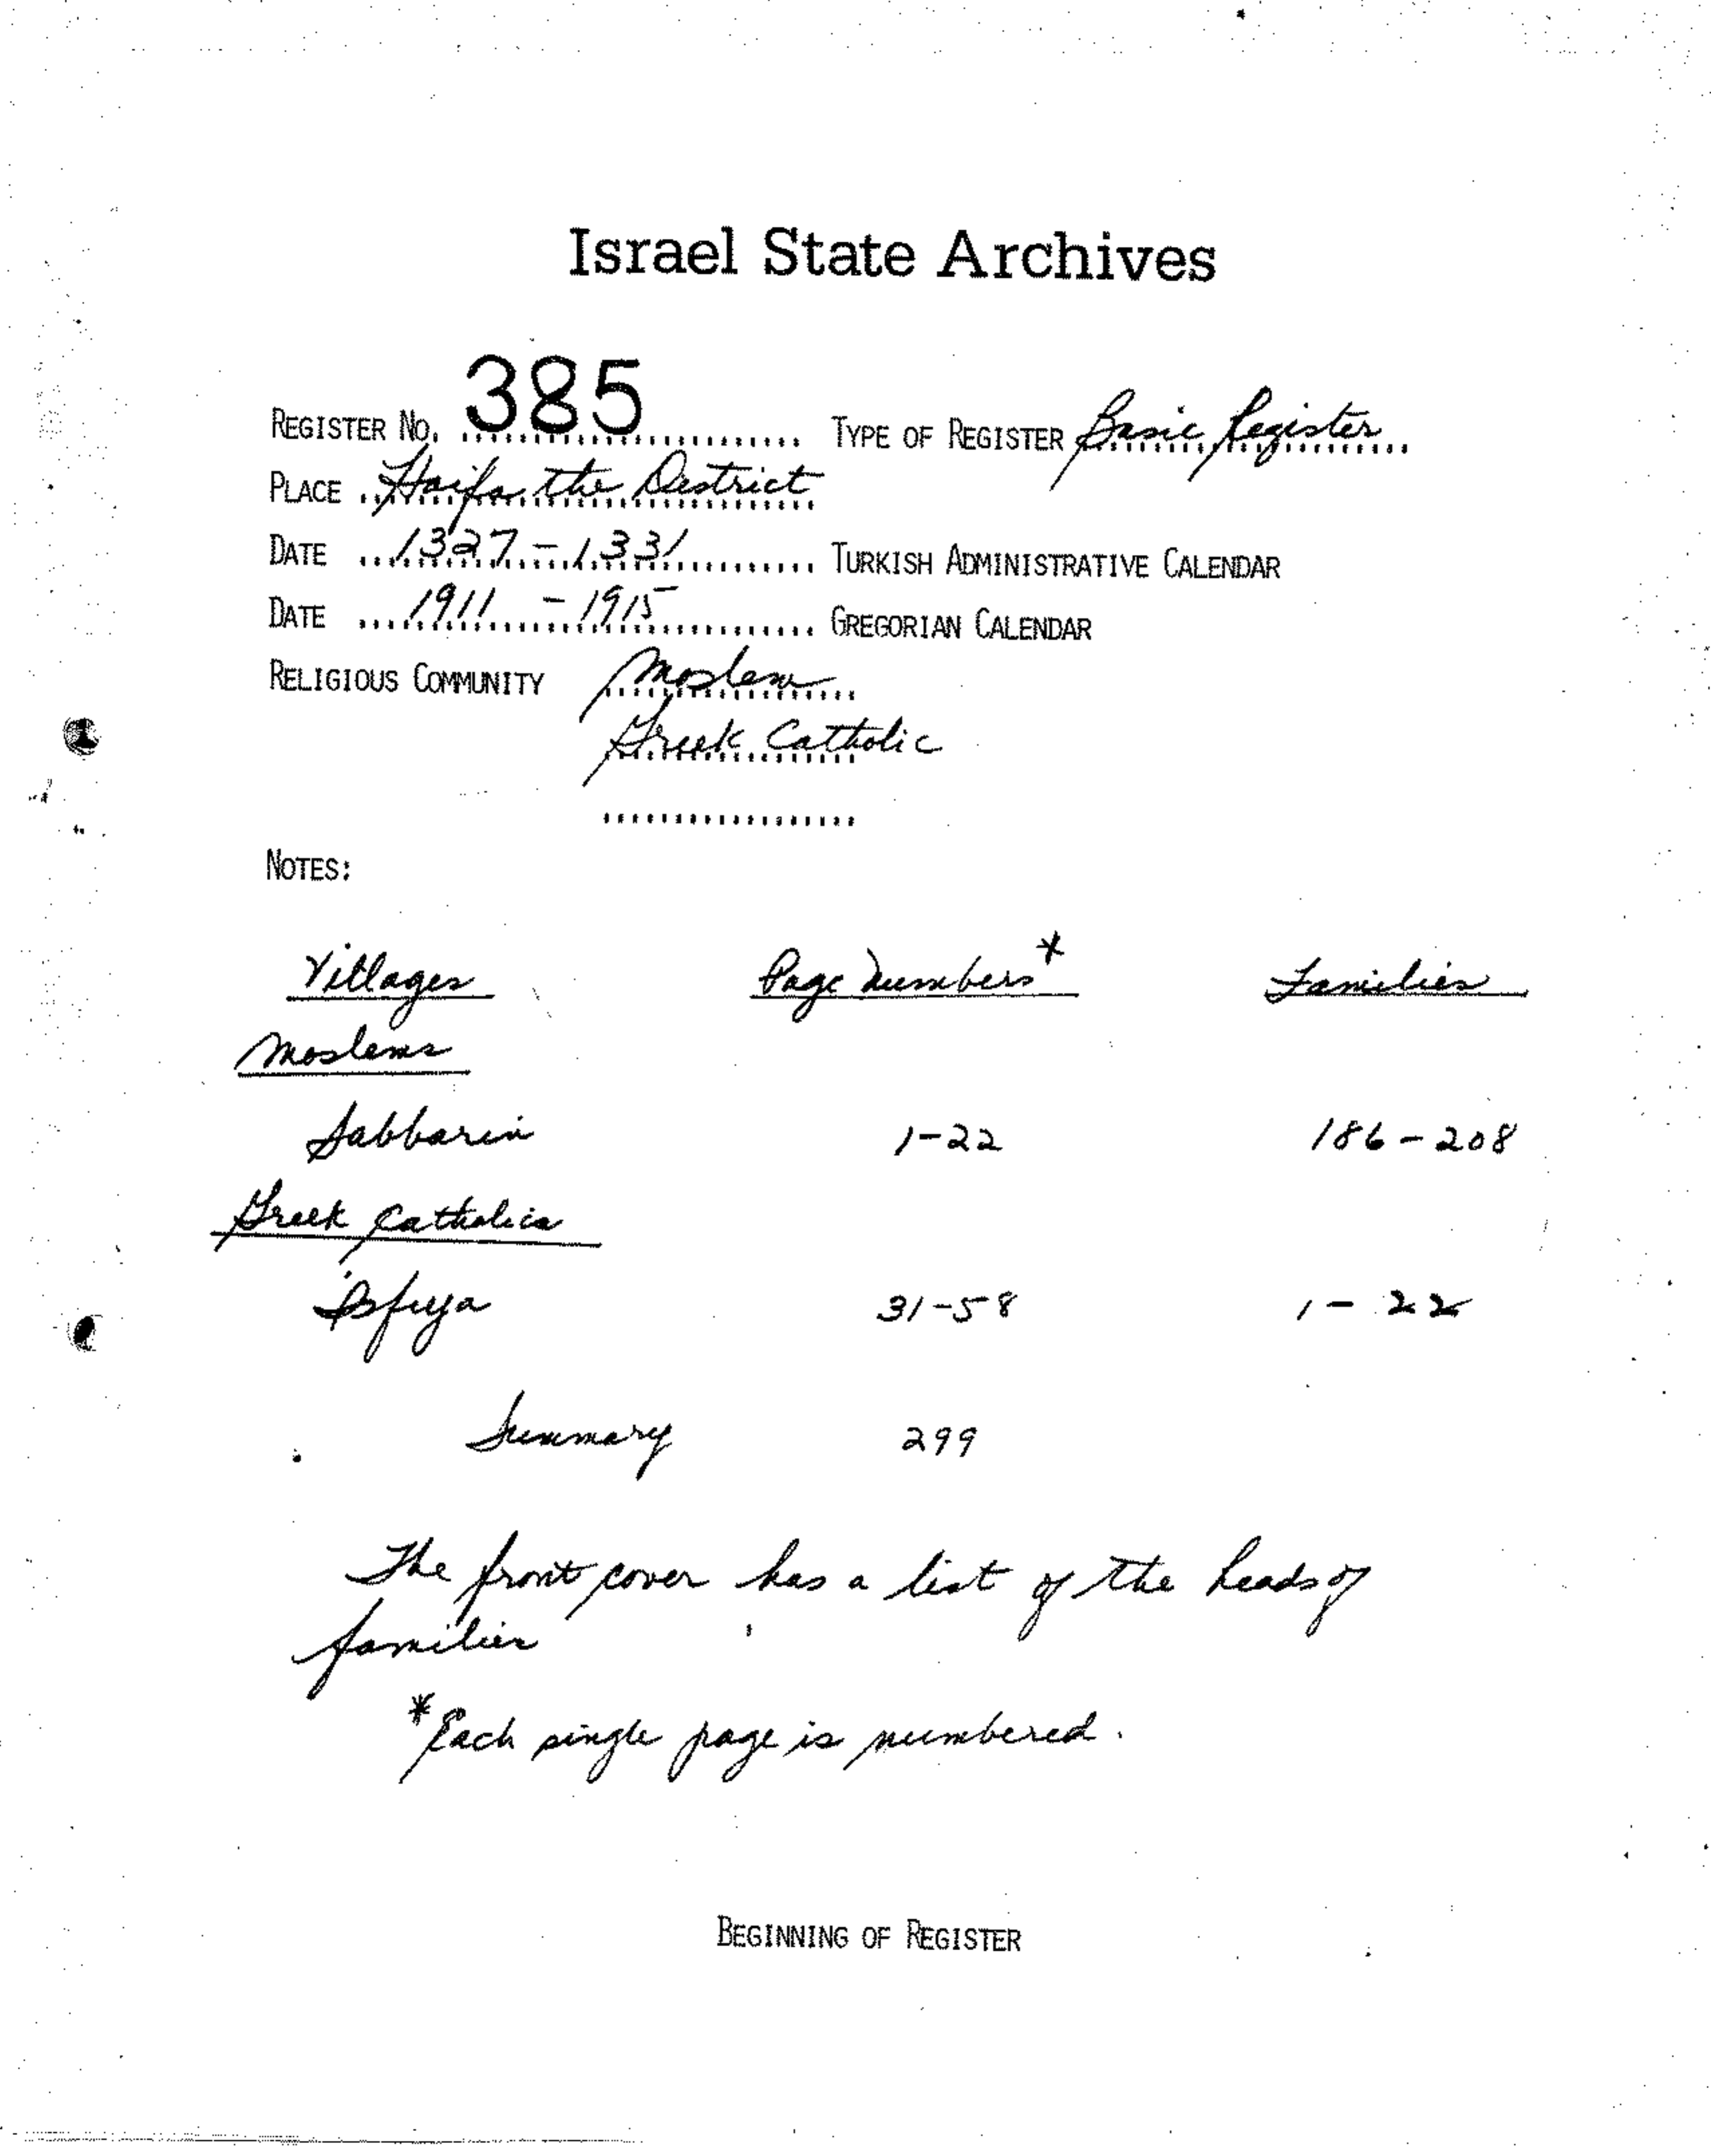 Israel State Archives
REGISTER NO. 385 TYPE OF REGISTER Basic Register
PLACE Haifa the District
DATE 1327-1331 TURKISH ADMINISTRATIVE CALENDAR
DATE 1911 - 1915 GREGORIAN CALENDAR
RELIGIOUS COMMUNITY Moslem
Greek Catholic
NOTES:
Villages Page Numbers* Families
Moslems
Sabbarin 1-22 186-208
Greek Catholics
Isfiya 31-58 1-22
Summary 299
The front cover has a list of the heads of
families
*Each single page is numbered.
BEGINNING OF REGISTER